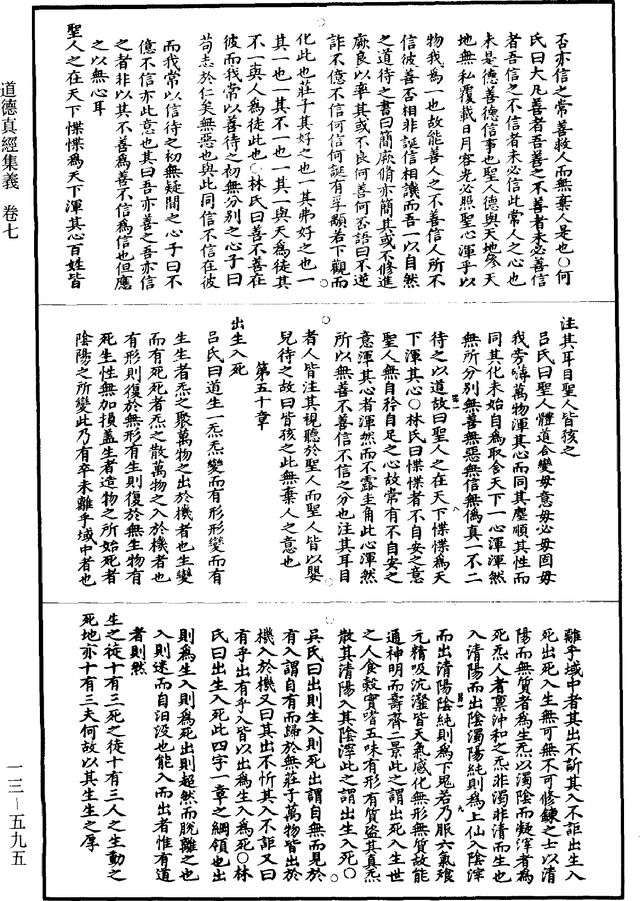 否亦信之常善救人而無棄人是也○何
氏曰大凡善者吾善之不善者未必善信
者吾信之不信者未必信此常人之心也
未是德善德信事也聖人德與天地參天
地無私覆載日月容光必照聖心渾乎以
物我為一也故能善人之不善信人所不
信彼善否相非誕信相譏而吾一以自然
之道待之書曰簡厥脩亦簡其或不修進
厥良以率其或不良何善何否語曰不逆
詐不億不信何信何誕有孚顒若下觀而
化此也莊子其好之也一其弗好之也一
其一也一其不一也一其一與天為徒其
不一與人為徒此也○林氏曰善不善在
彼而我常以善待之初無分別之心子曰
苟志於仁矣無惡也與此同信不信在彼
而我常以信待之初無疑間之心子曰不
億不信亦此意也其曰吾亦善之吾亦信
之者非以其不善為善不信為信也但應
之以無心耳
聖人之在天下惵惵為天下渾其心百姓皆
注其耳目聖人皆孩之
呂氏曰聖人體道合變毋意毋必毋固毋
我旁礴萬物渾其心而同其塵順其性而
同其化未始自為取舍天下一心渾渾然
無所分別無善無惡無信無偽真一不二
待之以道故曰聖人之在天下惵惵為天
下渾其心○林氏曰惵惵者不自安之意
聖人無自矜自足之心故常有不自安之
意渾其心者渾然而不露圭角此心渾然
所以無善不善信不信之分也注其耳目
者人皆注其視聽於聖人而聖人皆以嬰
兒待之故曰皆孩之此無棄人之意也
第五十章
出生入死
呂氏曰道生一炁炁變而有形形變而有
生生者炁之聚萬物之出於機者也生變
而有死死者炁之散萬物之入於機者也
有形則復於無形有生則復於無生物有
死生性無加損蓋生者造物之所始死者
陰陽之所變此乃有卒未離乎域中者也
離乎域中者其出不訢其入不詎出生入
死出死入生無可無不可修鍊之士以清
陽而無質者為生炁以濁陰而凝滓者為
死炁人者稟沖和之炁非濁非清而生也
入清陽而出陰濁陽純則為上仙入陰滓
而出清陽陰純則為下鬼若乃服六氣飡
元精吸沆瀣皆天氣感化無形無質故能
通神明而壽齊二景此之謂出死入生世
之人食穀實嗜五味有形有質盜其真炁
散其清陽入其陰滓此之謂出生入死○
吳氏曰出則生入則死出謂自無而見於
有入謂自有而歸於無莊子萬物皆出於
機入於機又曰其出不忻其入不詎又曰
有乎出有乎入皆以出為生入為死○林
氏曰出生入死此四字一章之綱領也出
則為生入則為死出則超然而脫離之也
入則迷而自汨沒也能入而出者惟有道
者則然
生之徒十有三死之徒十有三人之生動之
死地亦十有三夫何故以其生生之厚
道德真經集義　卷七
一三－五九五